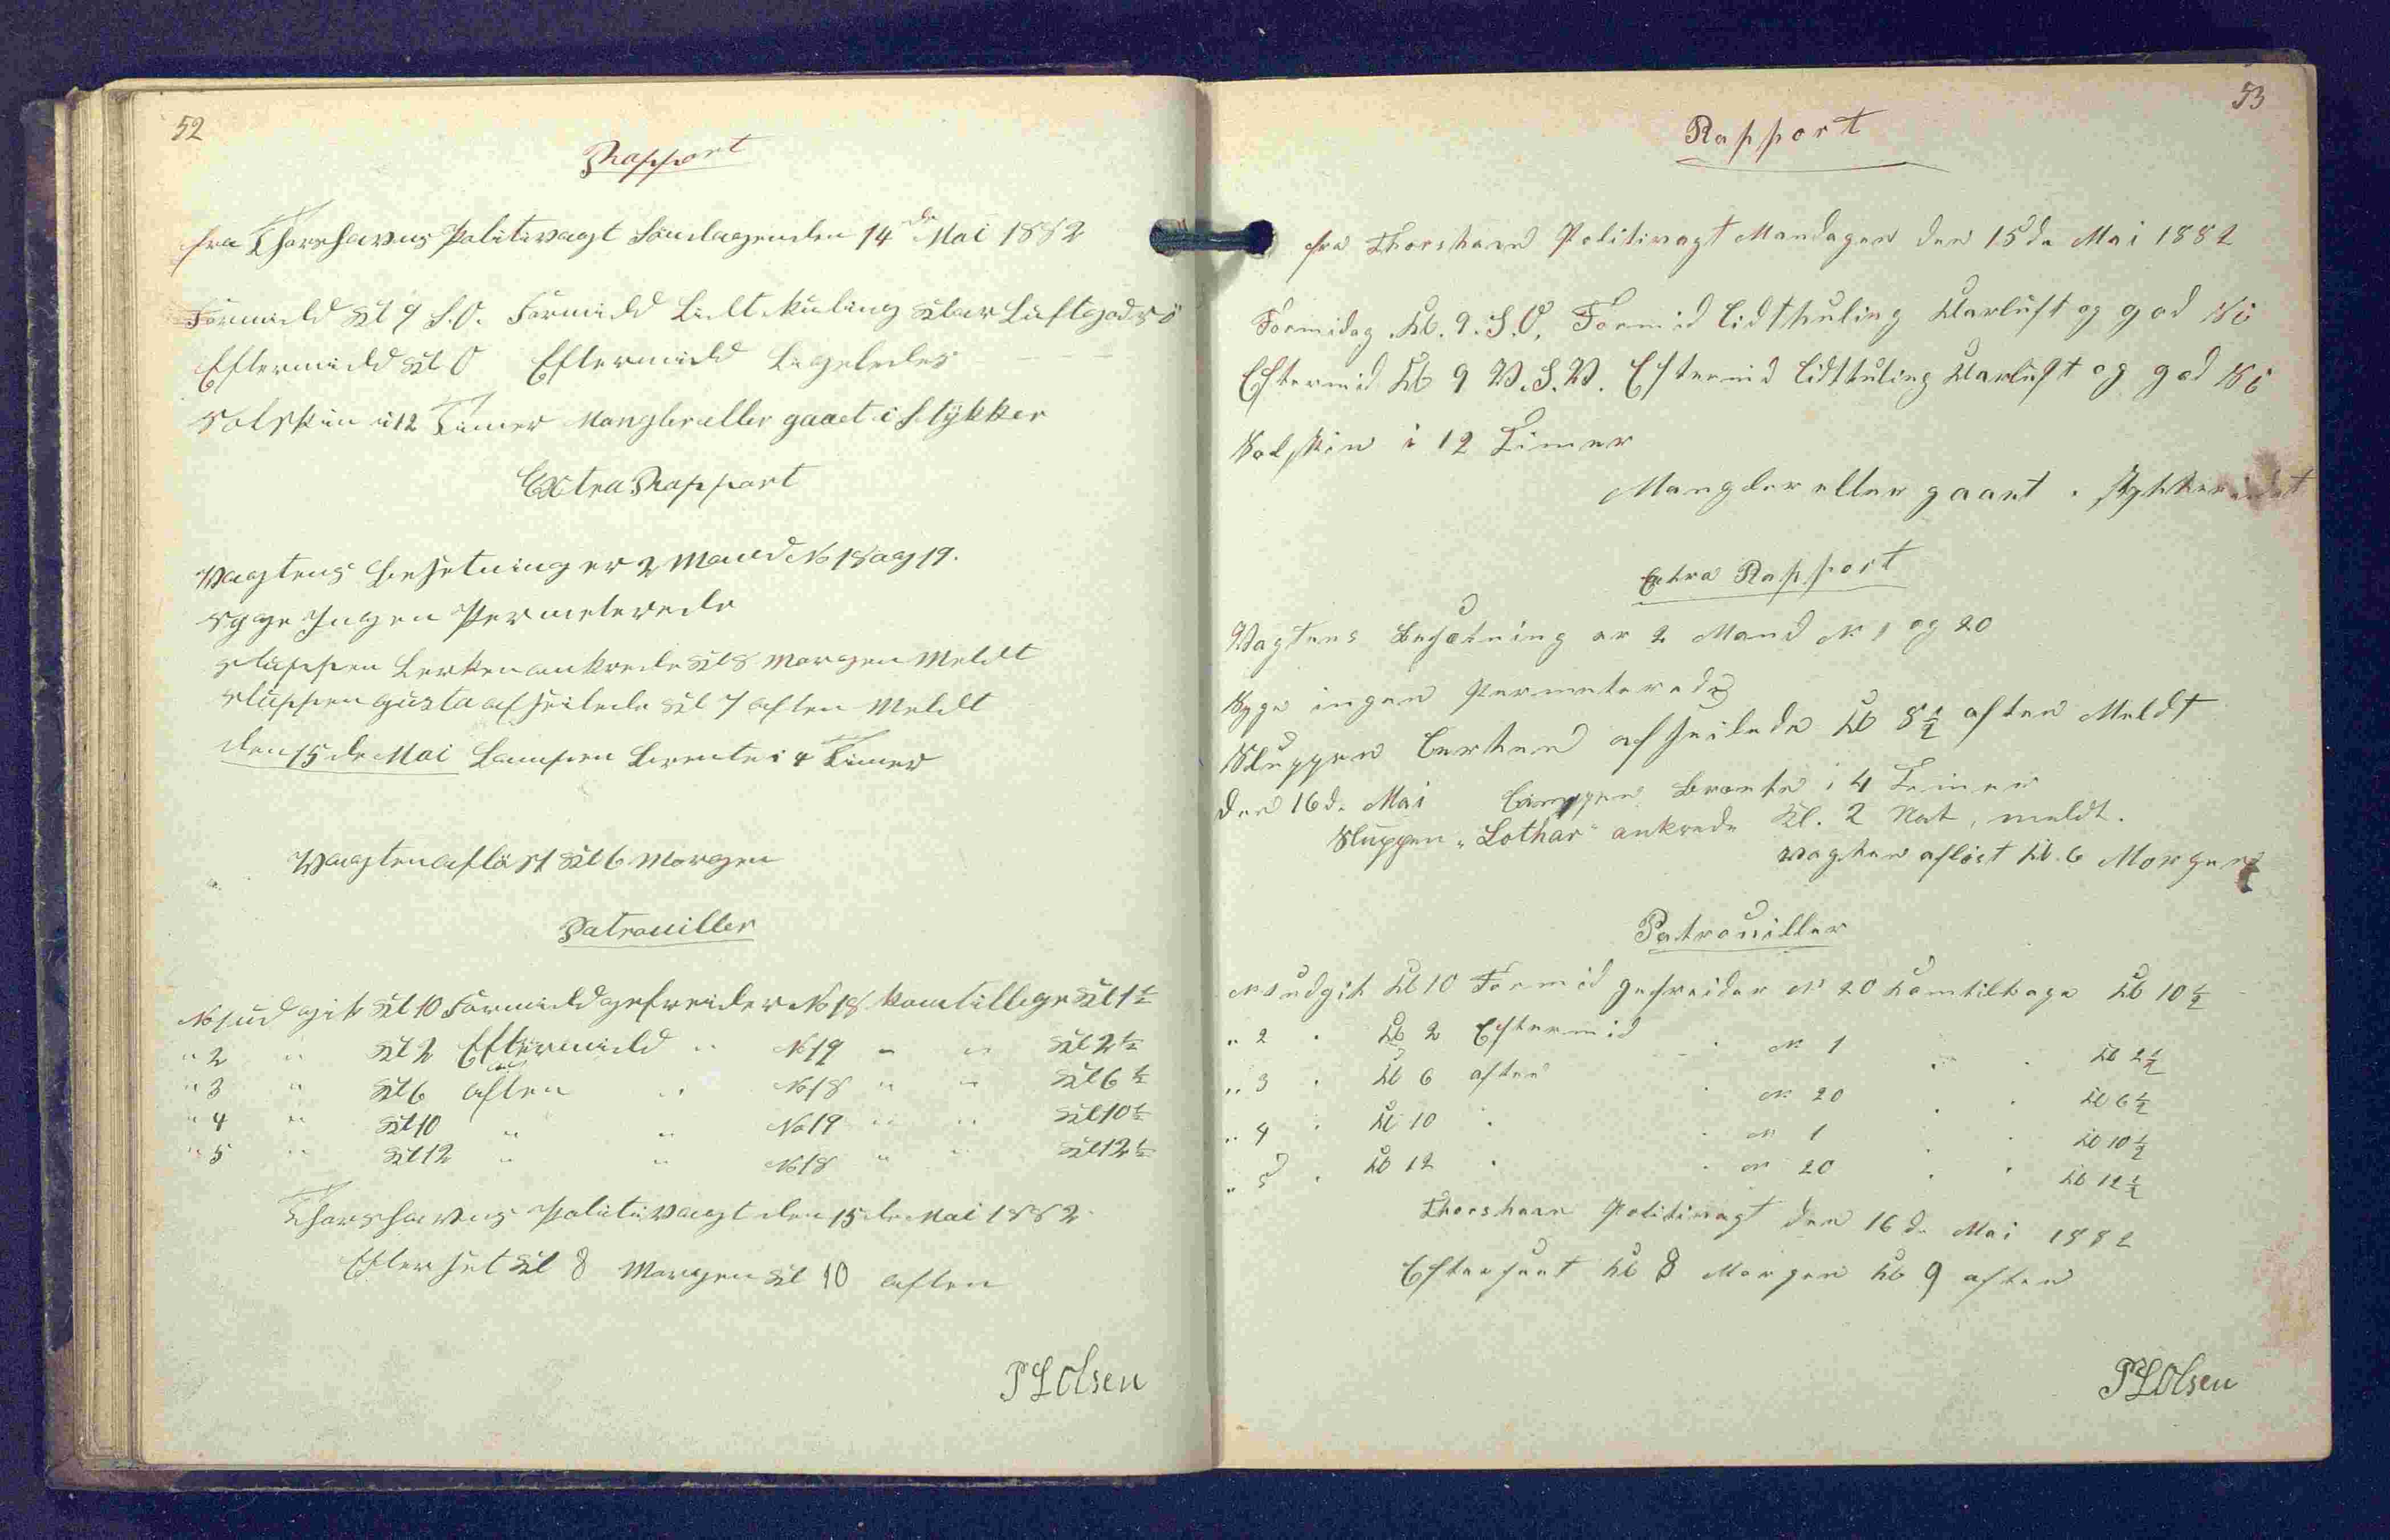 52
Rapport
fra Thorshavns Politivagt Søndagen den 14de Mai 1882
Formidd Kl 9 S.O. Formidd Lidt Kuling Klar Luft god Sö
Eftermidd Kl O Eftermidd Ligeledes
Solskin i 12 Timer Mangler eller gaaet i Stykker
Extra Rapport
Vagtens Besetning er 2 Mand No 18 og 19.
Syge Ingen Permeterede
Sluppen Lerken ankrede Kl 8 Morgen Meldt
Sluppen Gusta afseilede Kl 7 Aften Meldt
den 15de Mai Lampen Brente i 4 Timer
Vagten aflöst Kl 6 Morgen
Patrouiller
No 1 udgik Kl 10 Formidd gefreider No 18 kom tillbge Kl 1½
" 2 " Kl 2 Eftermidd " No 19 " " Kl 2½
" 3 " Kl 6 Aften " No 18 " " Kl 6½
" 4 " Kl 10 " " No 19 " " Kl 10½
" 5 " Kl 12 " " No 18 " " Kl 12½
Thorshavns Politivagt den 15de Mai 1882
Efterset Kl 8 Morgen Kl 10 Aften
P L Olsen
53
Rapport
fra Thorshavn Politivagt Mandagen den 15de Mai 1882
Formidag Kl. 9. S.O. Formid Lidt kuling Klarluft og god Sö
Eftermid Kl 9 V.S.V. Eftermid Lidt kuling Klarluft og god Sö
Solskin i 12 Timer
Mangler eller gaaet i Stykker
Extra Rapport
Vagtens Besætning er 2 Mand No 1 og 20
Syge ingen Permeterede
Sluppen Lerken afseilede Kl 8½ aften Meldt
Den 16d. Mai Lampen Brænte i 4 Timer
Sluppen "Lothar" ankrede Kl. 2 Nat, meldt.
Vagten afløst Kl. 6 Morgen
Patrouiller
No 1 udgik Kl 10 Formid gefreider No 20 Kom tilbage Kl 10½
" 2 " Kl 2 Eftermid " No 1 " " Kl 2½
" 3 " Kl 6 aften " No 20 " " Kl 6½
" 4 " Kl 10 " " No 1 " " Kl 10½
" 5 " Kl 12 " " No 20 " " Kl 12½
Thorshavn Politivagt den 16d. Mai 1882
Efterseet Kl 8 Morgen Kl 9 aften
P L Olsen